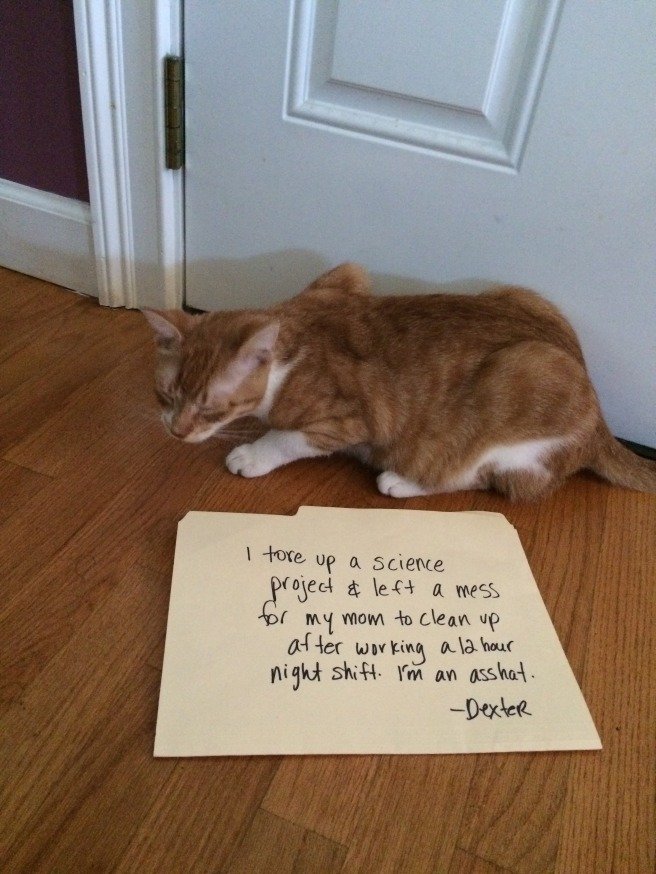 I tore up a science
project & left a mess
for my mom to clean up
after working a 12 hour
night shift. I'm an asshat.
-Dexter